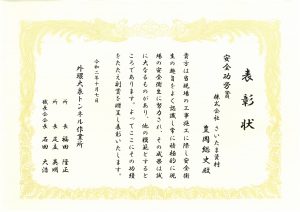 表彰状
安全功労賞
株式会社 さいたま資材
豊岡総史殿
貴方は当現場の工事施工に際し安全衛
生の趣旨をよく認識し常に積極的に現
場の安全衛生に努力され、その成果は誠
に大なるものがあり、他の模範とすると
ころであります。よってここにその功績
をたたえ副賞を贈呈し表彰いたします。
令和二年十月七日
外環大泉トンネル作業所
所長 福田隆正
所長 足立英明
職長会会長 石田大浩